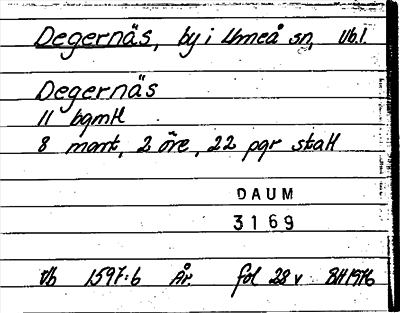 Degernäs, by i Umeå sn, Vb.l.
Degernäs
11 bgmtl
8 mant, 2 öre, 22 pgr skatt
DAUM
3169
Vb 1597:6 År. fol 28 v BH 1976